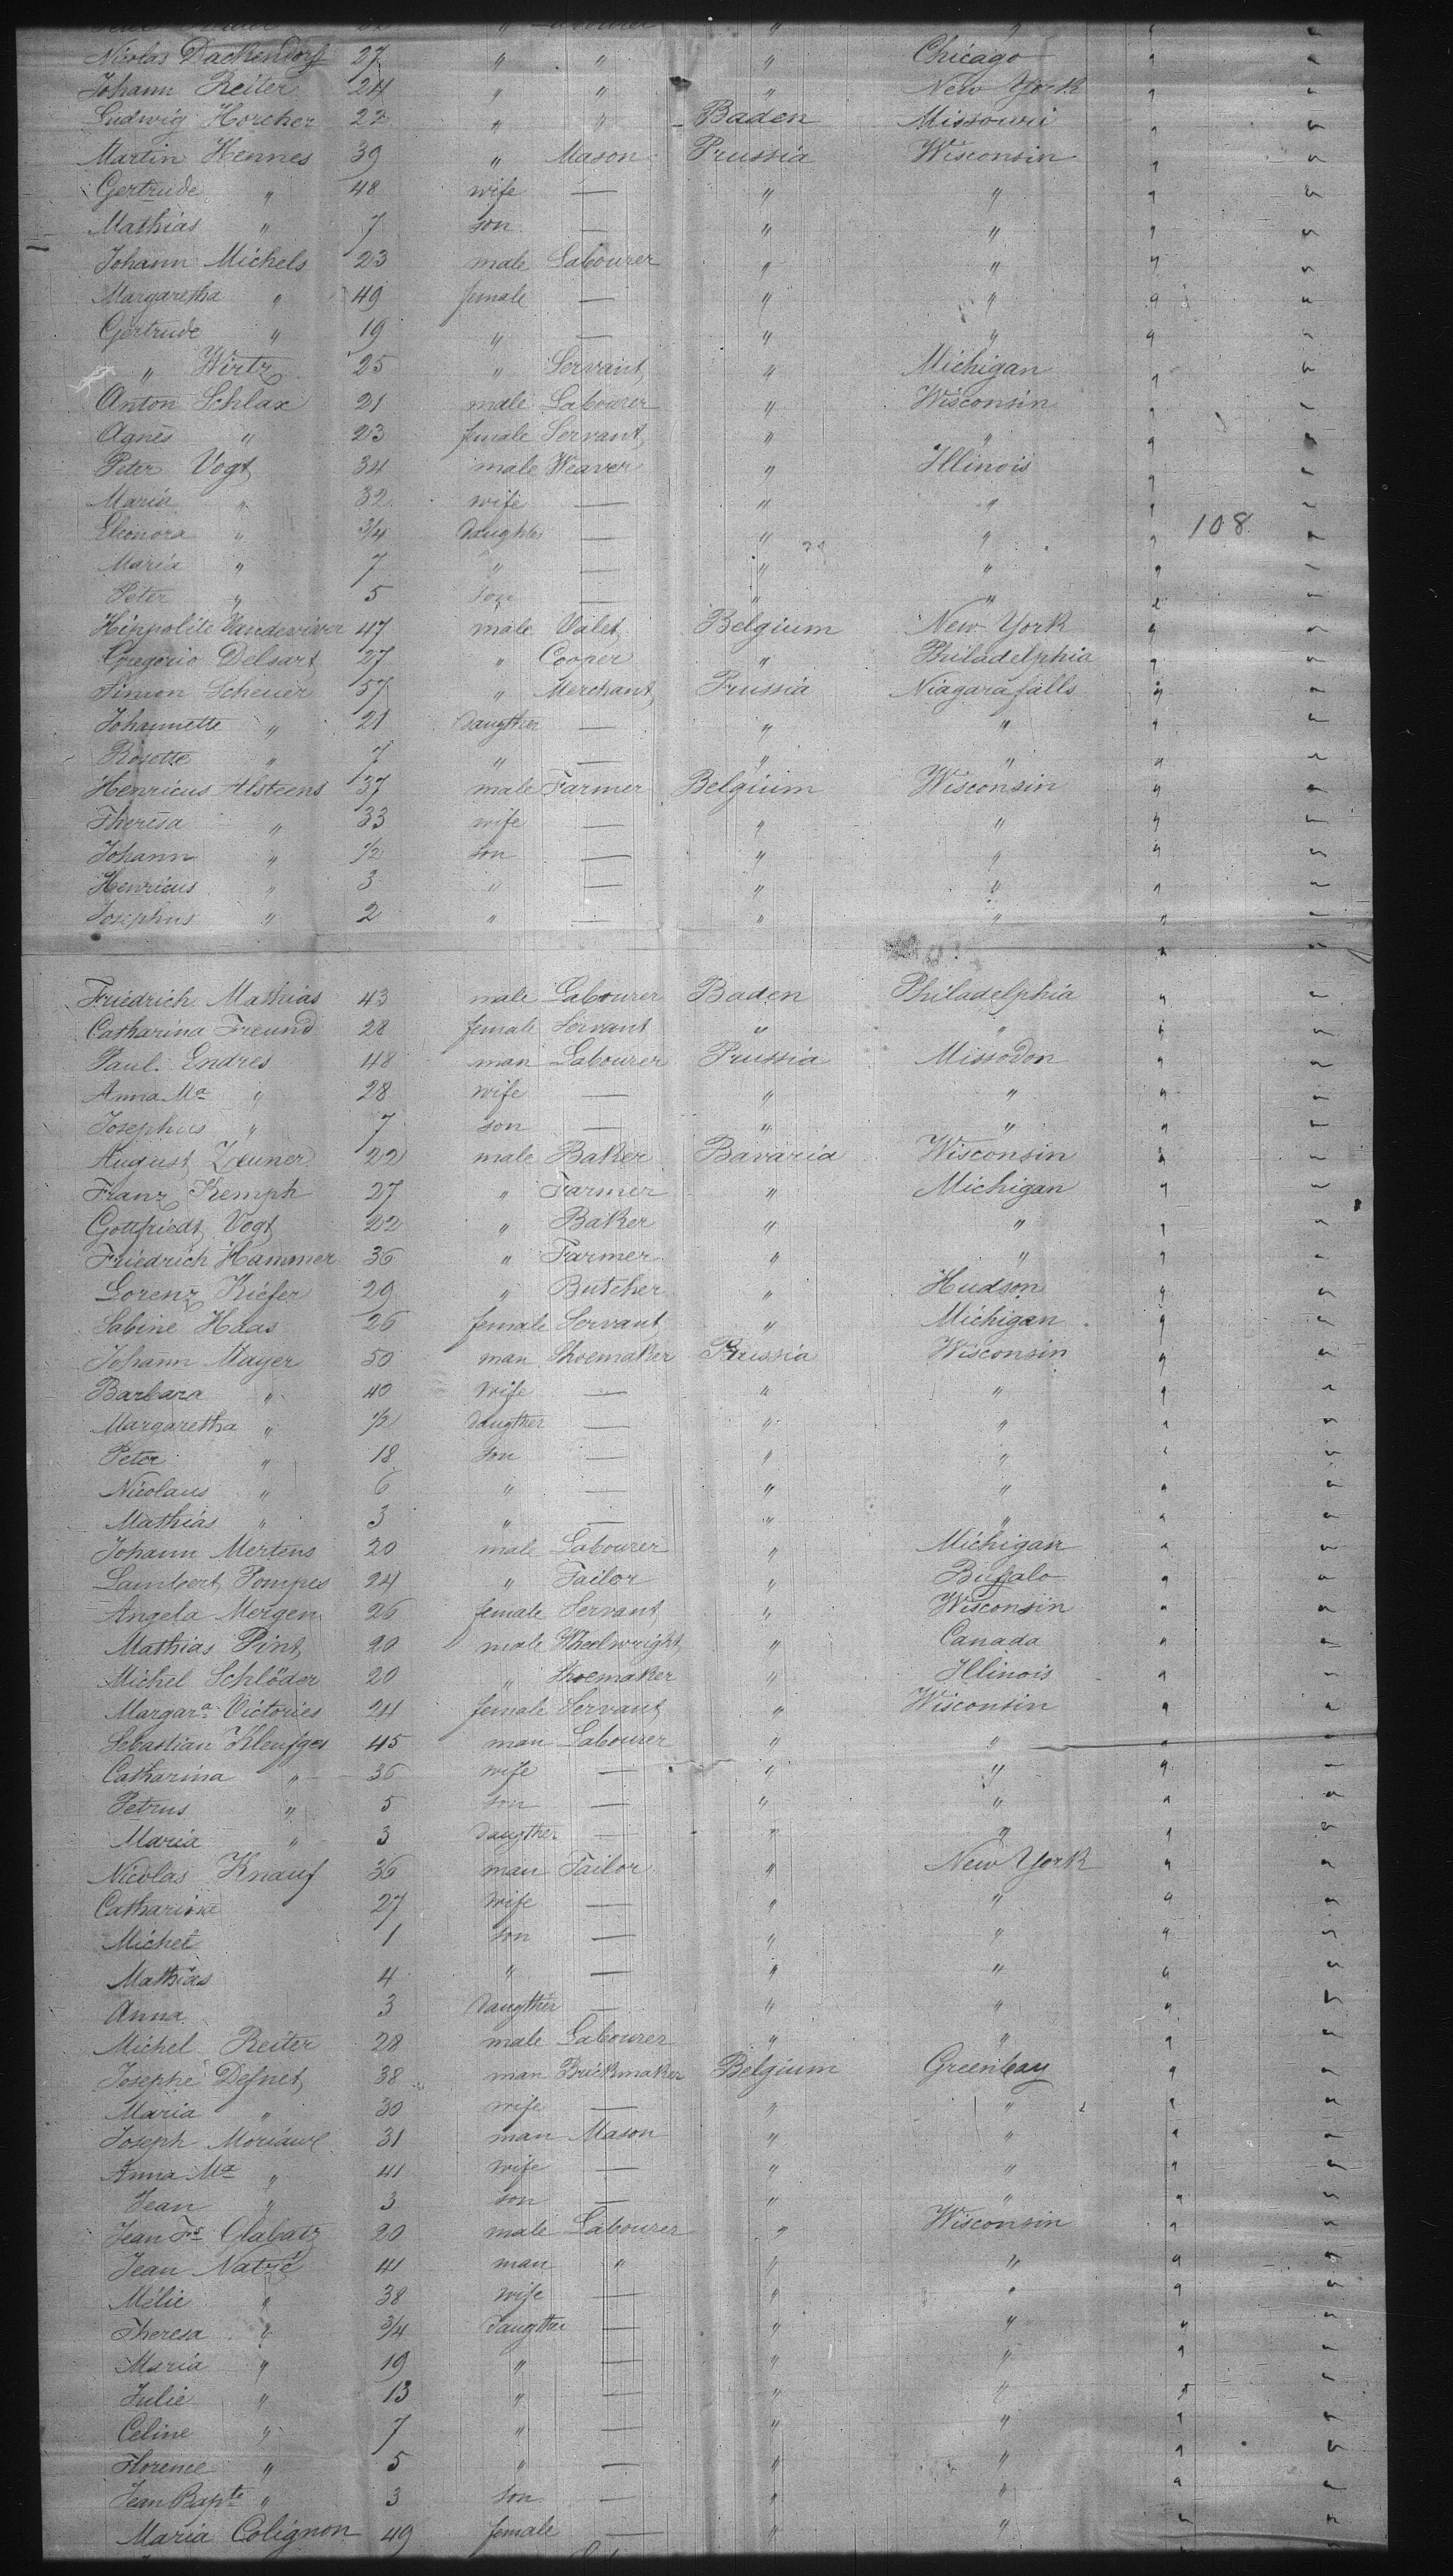 Nicolas Dackendorf 27 " " " Chicago " "
Johann Reiter 24 " " " New York " "
Ludwig Horcher 22 " " Baden Missouri " "
Martin Hennes 39 " Mason Prussia Wisconsin " "
Gertrude " 48 wife — " " " "
Mathias " 7 son — " " " "
Johann Michels 23 male Labourer " " " "
Margaretha " 49 female — " " " "
Gertrude " 19 " — " " " "
" Wirtz 25 " Servant " Michigan " "
Anton Schlax 21 male Labourer " Wisconsin " "
Agnes " 23 female Servant " " " "
Peter Vogt 34 male Weaver " Illinois " "
Maria " 32 wife — " " " "
Eleonora " 3/4 Daughter — " " " 108 "
Maria " 7 " — " " " "
Peter " 5 Son — " " " "
Hippolite Vandewiver 47 male Valet Belgium New York " "
Gregorio Delsart 27 " Cooper " Philadelphia " "
Simon Scheuer 57 " Merchant Prussia Niagarafalls " "
Johannette " 21 Daugther — " " " "
Rosette " 7 " — " " " "
Henricus Alsteens 37 male Farmer Belgium Wisconsin " "
Theresa " 33 wife — " " " "
Johann " 1/2 son — " " " "
Henricus " 3 " — " " " "
Josephus " 2 " — " " " "
" "
Friedrich Mathias 43 male Labourer Baden Philadelphia " "
Catharina Freund 28 female Servant " " " "
Paul Endres 48 man Labourer Prussia Missodon " "
Anna Ma " 28 wife — " " " "
Josephus " 7 son — " " " "
August Zauner 22 male Baker Bavaria Wisconsin " "
Franz Kemph 27 " Farmer " Michigan " "
Gottfriedt Vogt 22 " Baker " " " "
Friedrich Hammer 36 " Farmer " " " "
Lorenz Kiefer 29 " Butcher " Hudson " "
Sabine Haas 26 female Servant " Michigan " "
Johann Mayer 50 man Shoemaker Prussia Wisconsin " "
Barbara " 40 wife — " " " "
Margaretha " 1/2 Daugther — " " " "
Peter " 18 son — " " " "
Nicolaus " 6 " — " " " "
Mathias " 3 " — " " " "
Johann Mertens 20 male Labourer " Michigan " "
Lambert Pompes 24 " Tailor " Buffalo " "
Angela Mergen 26 female Servant " Wisconsin " "
Mathias Pint 20 male Wheelwright " Canada " "
Michel Schlöder 20 " Shoemaker " Illinois " "
Margara Victories 24 female Servant " Wisconsin " "
Sebastian Klenfges 45 man Labourer " " " "
Catharina " 36 wife — " " " "
Petrus " 5 son — " " " "
Maria " 3 Daugther — " " " "
Nicolas Knauf 36 man Tailor " New York " "
Catharina 27 wife — " " " "
Michel 1 son — " " " "
Mathias 4 " — " " " "
Anna 3 Daugther — " " " "
Michel Reiter 28 male Labourer " " " "
Josephe Defnet 38 man Brickmaker Belgium Greenbay " "
Maria " 30 wife — " " " "
Joseph Moriaux 31 man Mason " " " "
Anna Ma " 41 wife — " " " "
Jean " 3 son — " " " "
Jean Fs Glabatz 20 male Labourer " Wisconsin " "
Jean Natzié 41 man " " " " "
Mélie " 38 wife — " " " "
Theresa " 3/4 Daugther — " " " "
Maria " 19 " — " " " "
Julie " 13 " — " " " "
Celine " 7 " — " " " "
Florence " 5 " — " " " "
Jean Bapte " 3 son — " " " "
Maria Colignon 49 female — " " " "